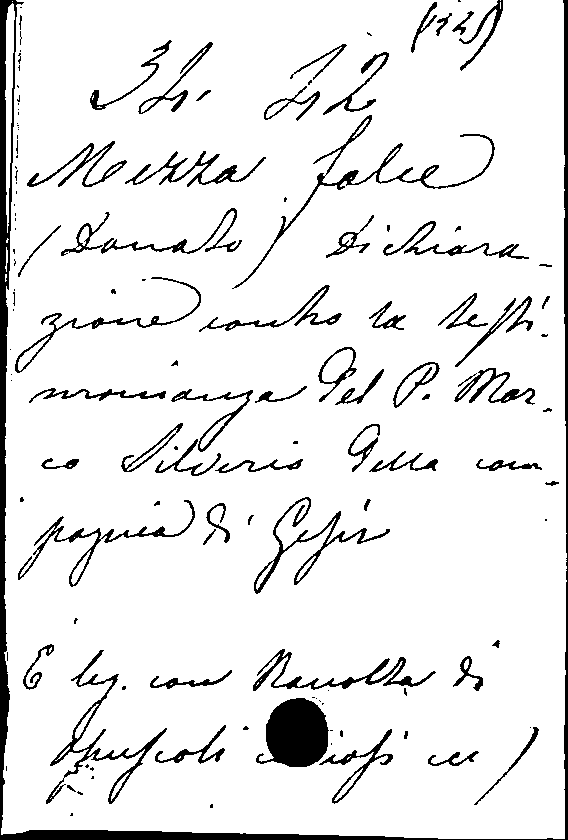 (125)
34. 42
Mezza falce
(Donato) Dichiara-
zione contro la testi-
monianza del P. Mar-
co Silverio della com-
pagnia di Gesù
E leg. con Raccolta di
Opuscoli ec)